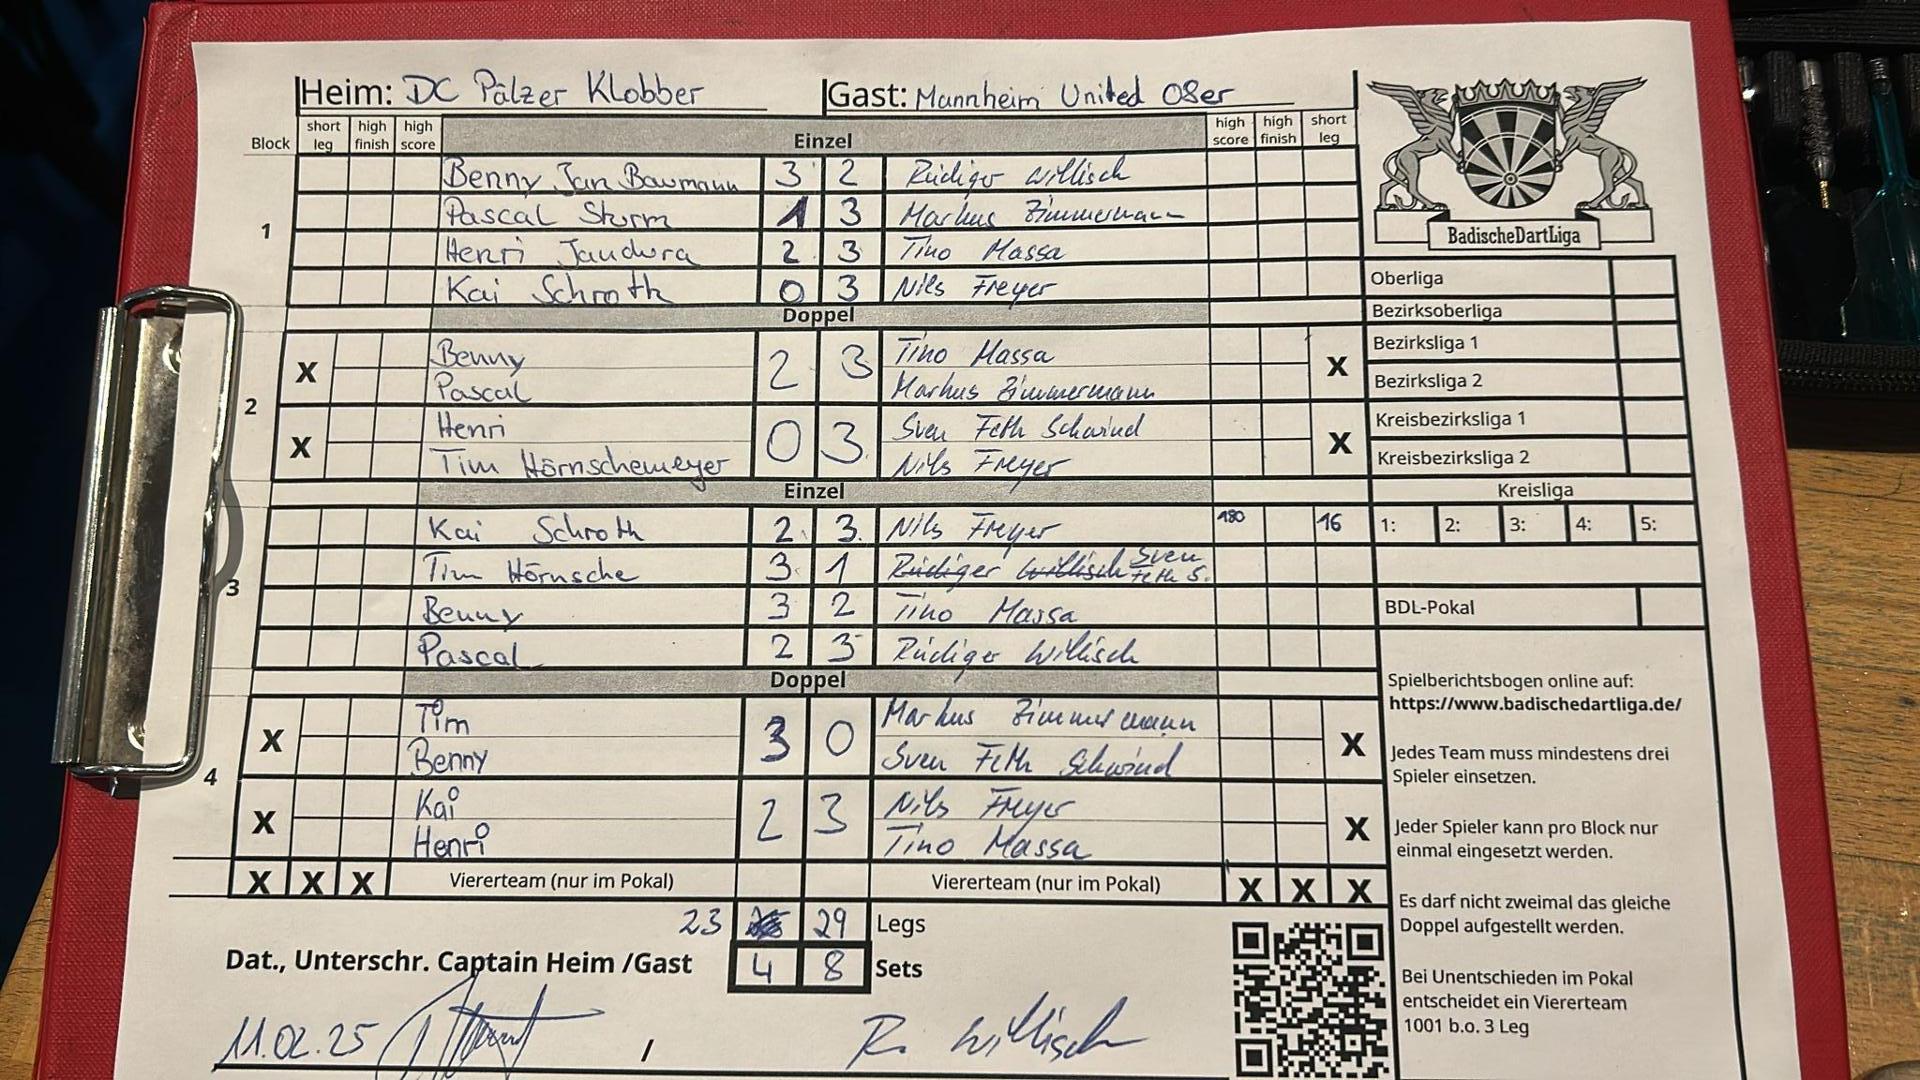 Heim: DC Pälzer Klobber Gast: Mannheim United 08er
Block short leg high finish high score Einzel high score high finish short leg
1
Benny Jan Baumann 3 2 Rüdiger Willisch
Pascal Sturm 1 3 Markus Zimmermann
Henri Jandura 2 3 Tino Massa
Kai Schroth 0 3 Nils Freyer
Doppel
2
X Benny 2 3 Tino Massa X
Pascal Markus Zimmermann
X Henri 0 3 Sven Feth Schwind X
Tim Hörnschemeyer Nils Freyer
Einzel
3
Kai Schroth 2 3 Nils Freyer 180 16
Tim Hörnsche 3 1 Rüdiger Willisch Sven Feth S.
Benny 3 2 Tino Massa
Pascal 2 3 Rüdiger Willisch
Doppel
4
X Tim 3 0 Markus Zimmermann X
Benny Sven Feth Schwind
X Kai 2 3 Nils Freyer X
Henri Tino Massa
X X X Viererteam (nur im Pokal) Viererteam (nur im Pokal) X X X
23 29 Legs
Dat., Unterschr. Captain Heim /Gast 4 8 Sets
11.02.25 / R. Willisch
BadischeDartLiga
Oberliga
Bezirksoberliga
Bezirksliga 1
Bezirksliga 2
Kreisbezirksliga 1
Kreisbezirksliga 2
Kreisliga
1: 2: 3: 4: 5:
BDL-Pokal
Spielberichtsbogen online auf:
https://www.badischedartliga.de/
Jedes Team muss mindestens drei
Spieler einsetzen.
Jeder Spieler kann pro Block nur
einmal eingesetzt werden.
Es darf nicht zweimal das gleiche
Doppel aufgestellt werden.
Bei Unentschieden im Pokal
entscheidet ein Viererteam
1001 b.o. 3 Leg